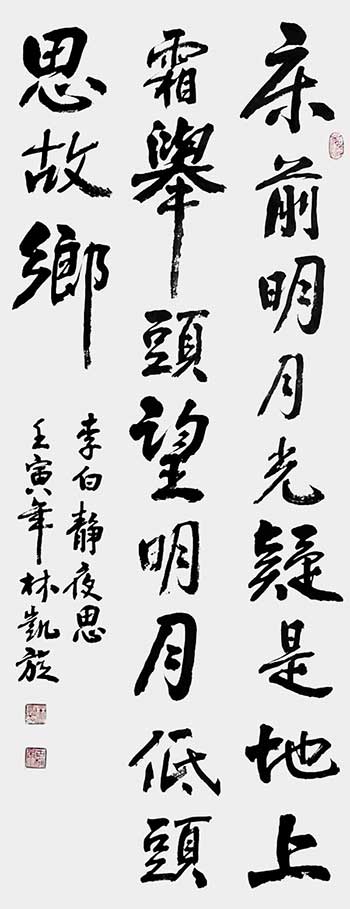 床前明月光疑是地上
霜舉頭望明月低頭
思故鄉
李白靜夜思
壬寅年林凱旋